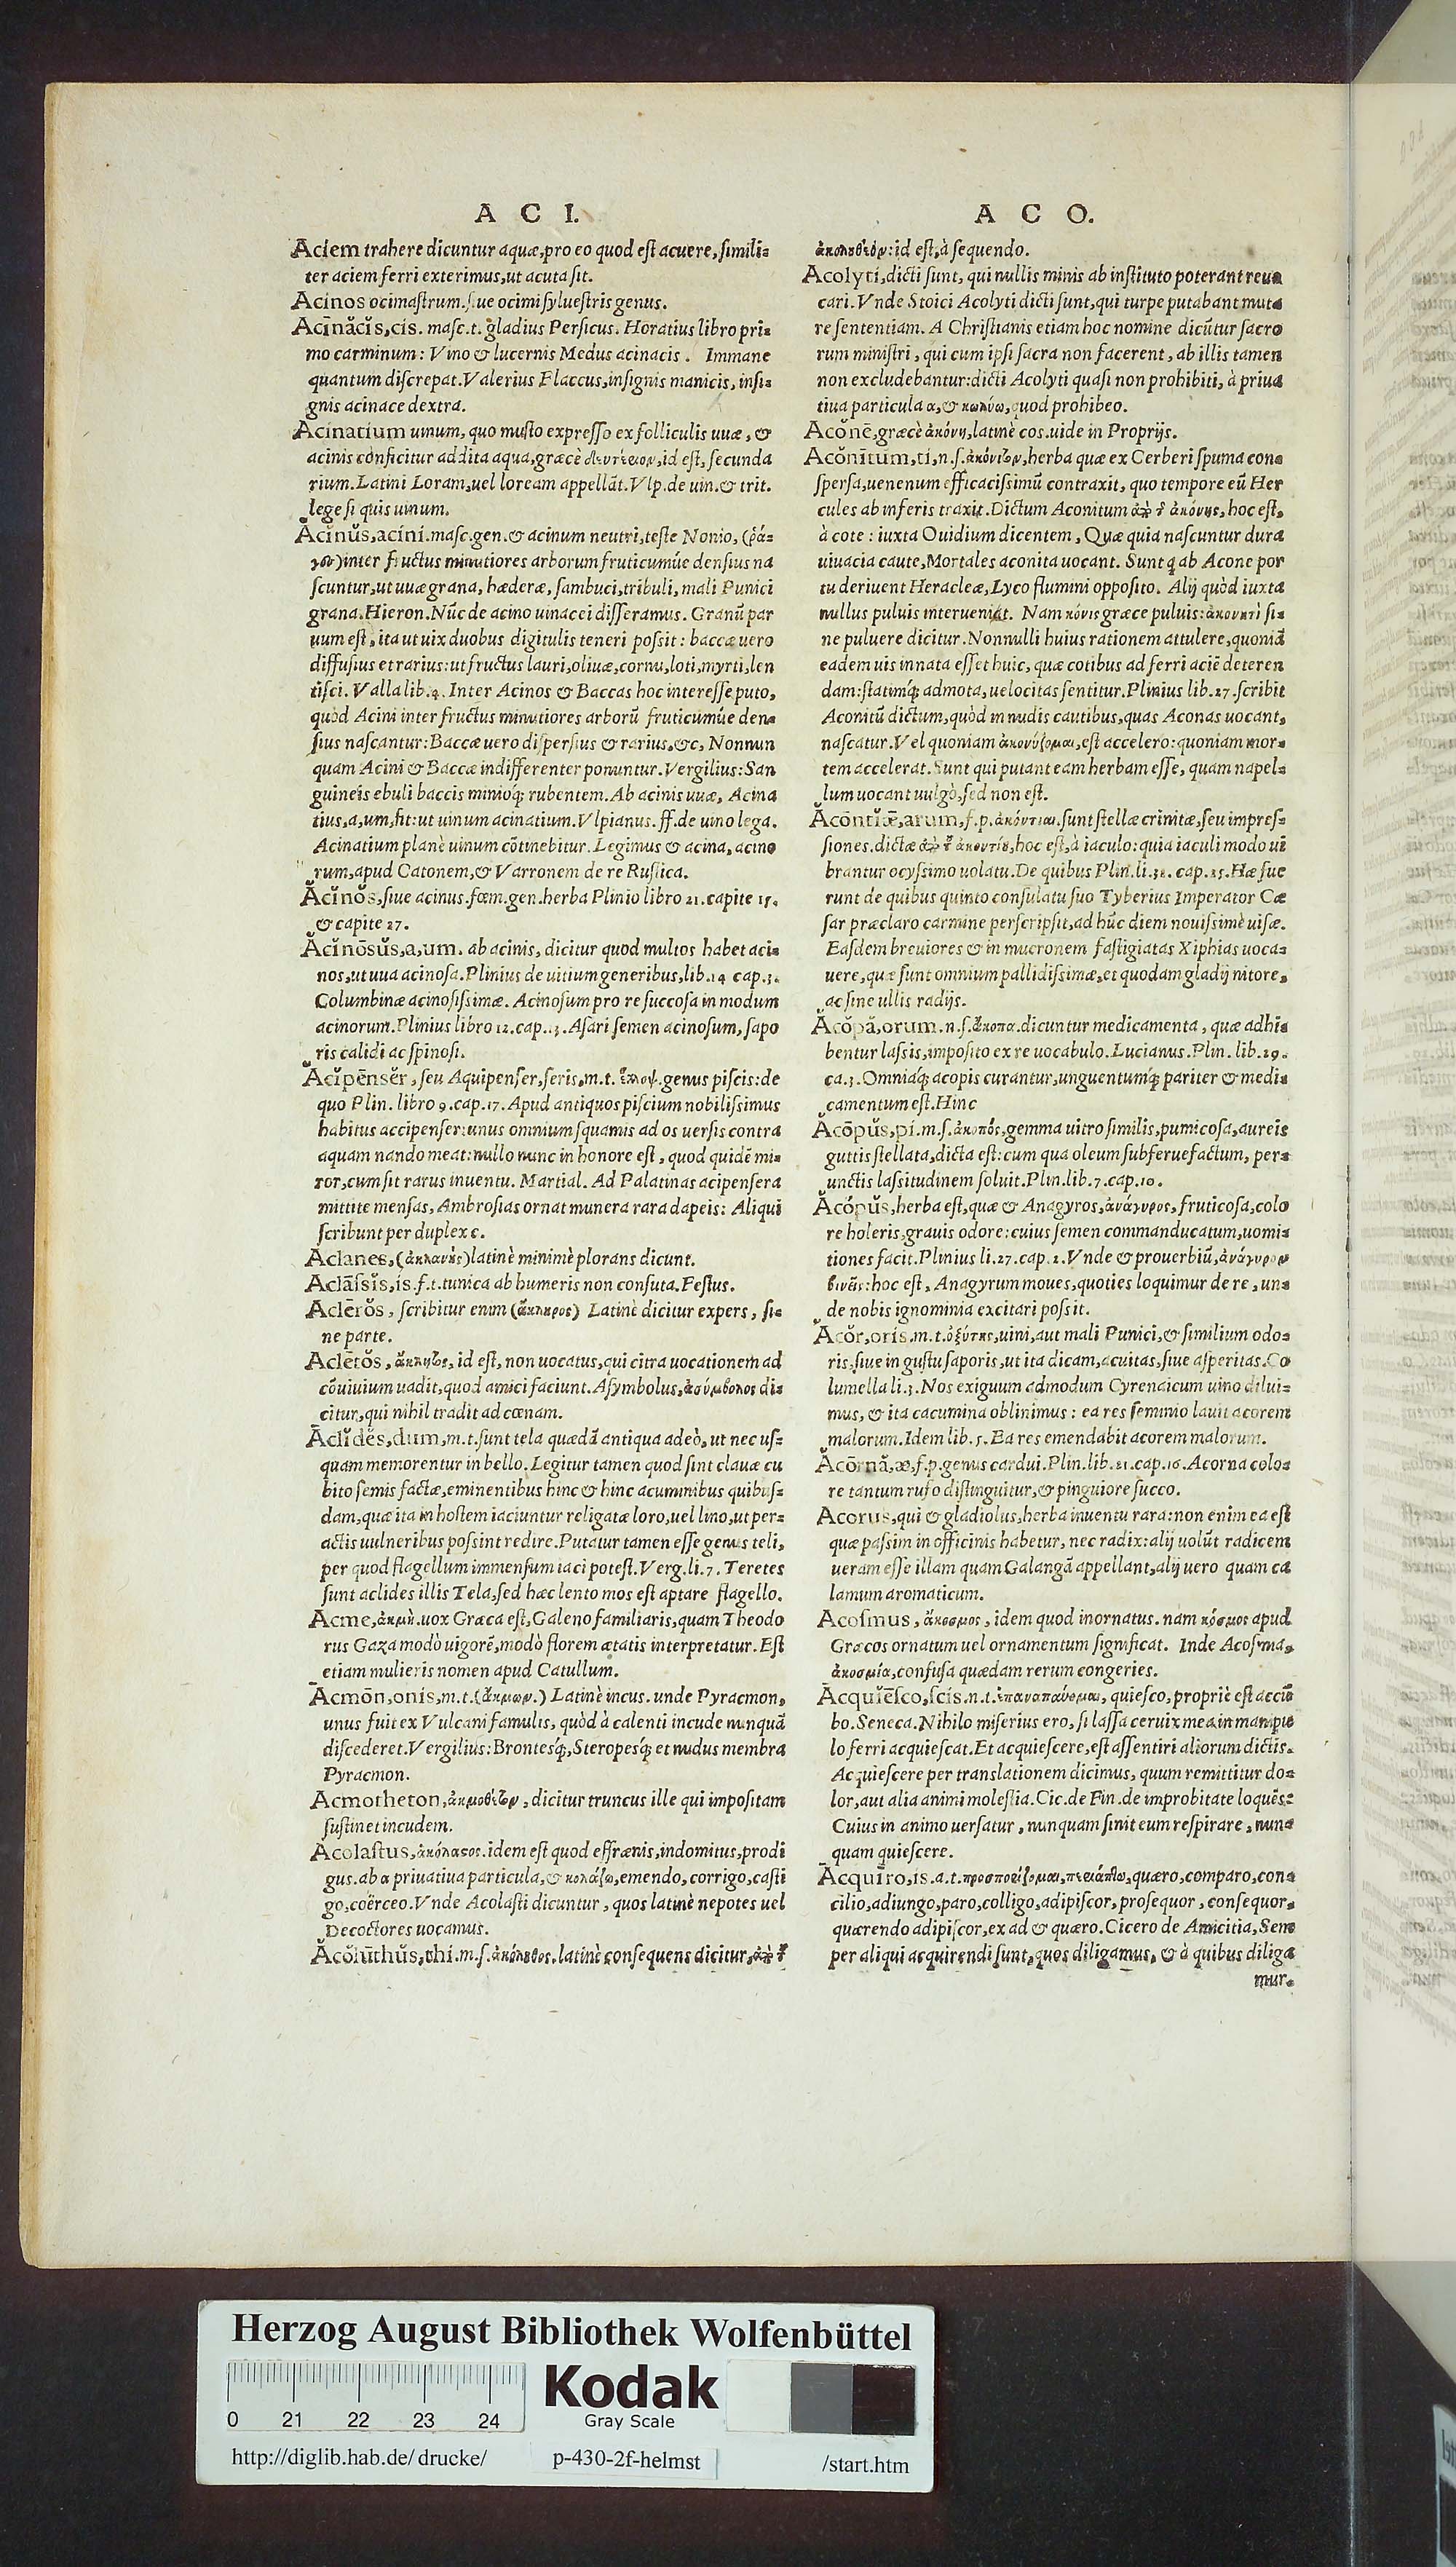 A C I.
Aciem trahere dicuntur aquæ, pro eo quod est acuere, simili-
ter aciem ferri exterimus, ut acuta sit.
Acinos ocimastrum. siue ocimi syluestris genus.
Acīnăcĭs, cis. masc. t. gladius Persicus. Horatius libro pri-
mo carminum: Vino & lucernis Medus acinacis. Immane
quantum discrepat. Valerius Flaccus, insignis manicis, insi-
gnis acinace dextra.
Acinatium uinum, quo musto expresso ex folliculis uuæ, &
acinis conficitur addita aqua, græcè id est, secunda
rium. Latini Loram, uel loream appellãt. Vlp. de uin. & trit.
lege si quis uinum.
Ăcĭnŭs, acini. masc. gen. & acinum neutri, teste Nonio, (ῥά-
inter fructus minutiores arborum fruticumúe densius na
scuntur, ut uuæ grana, hæderæ, sambuci, tribuli, mali Punici
grana. Hieron. Nũc de acino uinacei disseramus. Granũ par
uum est, ita ut uix duobus digitulis teneri possit: baccæ uero
diffusius et rarius: ut fructus lauri, oliuæ, cornu, loti, myrti, len
tisci. Valla lib. 4. Inter Acinos & Baccas hoc interesse puto,
quòd Acini inter fructus minutiores arborũ fruticumúe den-
sius nascantur: Baccæ uero dispersius & rarius, &c. Nonnun
quam Acini & Baccæ indifferenter ponuntur. Vergilius: San
guineis ebuli baccis minioq́; rubentem. Ab acinis uuæ, Acina
tius, a, um, fit: ut uinum acinatium. Vlpianus. ff. de uino lega.
Acinatium planè uinum cõtinebitur. Legimus & acina, acino
rum, apud Catonem, & Varronem de re Rustica.
Ăcĭnŏs, siue acinus. fœm. gen. herba Plinio libro 21. capite 15.
& capite 27.
Ăcĭnōsŭs, a, um. ab acinis, dicitur quod multos habet aci-
nos, ut uua acinosa. Plinius de uitium generibus, lib. 14 cap. 3.
Columbinæ acinosissimæ. Acinosum pro re succosa in modum
acinorum. Plinius libro 12. cap. 13. Asari semen acinosum, sapo
ris calidi ac spinosi.
Ăcĭpēnsĕr, seu Aquipenser, seris, m. t. genus piscis: de
quo Plin. libro 9. cap. 17. Apud antiquos piscium nobilissimus
habitus accipenser: unus omnium squamis ad os uersis contra
aquam nando meat: nullo nunc in honore est, quod quidẽ mi-
ror, cum sit rarus inuentu. Martial. Ad Palatinas acipensera
mittite mensas, Ambrosias ornat munera rara dapeis: Aliqui
scribunt per duplex c.
Aclanes, (ἀκλανὴς) latinè minimè plorans dicunt.
Aclāssĭs, is. f. t. tunica ab humeris non consuta. Festus.
Aclērŏs, scribitur enim (ἄκληρος) Latinè dicitur expers, si-
ne parte.
Aclētŏs, id est, non uocatus, qui citra uocationem ad
cõuiuium uadit, quod amici faciunt. Asymbolus, ἀσύμβολος di-
citur, qui nihil tradit ad cœnam.
Āclĭdĕs, dum, m. t. sunt tela quædã antiqua adeò, ut nec us-
quam memorentur in bello. Legitur tamen quod sint clauæ cu
bito semis factæ, eminentibus hinc & hinc acuminibus quibus-
dam, quæ ita in hostem iaciuntur religatæ loro, uel lino, ut per-
actis uulneribus possint redire. Putatur tamen esse genus teli,
per quod flagellum immensum iaci potest. Verg. li. 7. Teretes
sunt aclides illis Tela, sed hæc lento mos est aptare flagello.
Acme, ἀκμὴ. uox Græca est, Galeno familiaris, quam Theodo
rus Gaza modò uigorẽ, modò florem ætatis interpretatur. Est
etiam mulieris nomen apud Catullum.
Ācmōn, onis, m. t. (ἄκμων.) Latinè incus. unde Pyracmon,
unus fuit ex Vulcani famulis, quòd à calenti incude nunquã
discederet. Vergilius: Brontesq́;, Steropesq́; et nudus membra
Pyracmon.
Acmotheton, dicitur truncus ille qui impositam
sustinet incudem.
Acolastus, ἀκόλαστος. idem est quod effrænis, indomitus, prodi
gus. ab α priuatiua particula, & κολάζω, emendo, corrigo, casti
go, coërceo. Vnde Acolasti dicuntur, quos latinè nepotes uel
Decoctores uocamus.
Ăcŏlūthŭs, thi. m. s. ἀκόλουθος. latinè consequens dicitur,
A C O.
id est, à sequendo.
Acolyti, dicti sunt, qui nullis minis ab instituto poterant reuo
cari. Vnde Stoici Acolyti dicti sunt, qui turpe putabant muta
re sententiam. A Christianis etiam hoc nomine dicũtur sacro
rum ministri, qui cum ipsi sacra non facerent, ab illis tamen
non excludebantur: dicti Acolyti quasi non prohibiti, à priua
tiua particula α, & κωλύω, quod prohibeo.
Acŏnē, græcè ἀκόνη, latinè cos. uide in Proprijs.
Acŏnītum, ti, n. s. herba quæ ex Cerberi spuma con-
spersa, uenenum efficacissimũ contraxit, quo tempore eũ Her
cules ab inferis traxit. Dictum Aconitum ἀκόνης, hoc est,
à cote: iuxta Ouidium dicentem, Quæ quia nascuntur dura
uiuacia caute, Mortales aconita uocant. Sunt q ab Acone por
tu deriuent Heracleæ, Lyco flumini opposito. Alij quòd iuxta
nullus puluis interueniat. Nam κόνις græce puluis: ἀκονιτὶ si-
ne puluere dicitur. Nonnulli huius rationem attulere, quoniã
eadem uis innata esset huic, quæ cotibus ad ferri aciẽ deteren
dam: statimq́; admota, uelocitas sentitur. Plinius lib. 27 scribit
Aconitũ dictum, quòd in nudis cautibus, quas Aconas uocant,
nascatur. Vel quoniam est accelero: quoniam mor-
tem accelerat. Sunt qui putant eam herbam esse, quam napel-
lum uocant uulgò, sed non est.
Ăcōntĭæ, arum, f. p. ἀκόντιαι. sunt stellæ crinitæ, seu impres-
siones. dictæ hoc est, à iaculo: quia iaculi modo ui
brantur ocyssimo uolatu. De quibus Plin. li. 32. cap. 25. Hæ fue
runt de quibus quinto consulatu suo Tyberius Imperator Cæ
sar præclaro carmine perscripsit, ad hũc diem nouissimè uisæ.
Easdem breuiores & in mucronem fastigiatas Xiphias uoca-
uere, quæ sunt omnium pallidissimæ, et quodam gladij nitore,
ac sine ullis radijs.
Ăcŏpă, orum. n. s. ἄκοπα. dicuntur medicamenta, quæ adhi-
bentur lassis, imposito ex re uocabulo. Lucianus. Plin. lib. 29.
ca. 3. Omniaq́; acopis curantur, unguentumq́; pariter & medi-
camentum est. Hinc
Ăcŏpŭs, pi. m. s. ἀκοπός, gemma uitro similis, pumicosa, aureis
guttis stellata, dicta est: cum qua oleum subferuefactum, per-
unctis lassitudinem soluit. Plin. lib. 7. cap. 10.
Ăcŏpŭs, herba est, quæ & Anagyros, ἀνάγυρος, fruticosa, colo
re holeris, grauis odore: cuius semen commanducatum, uomi-
tiones facit. Plinius li. 27. cap. 2. Vnde & prouerbiũ, ἀνάγυρον
κινεῖς: hoc est, Anagyrum moues, quoties loquimur de re, un-
de nobis ignominia excitari possit.
Ăcŏr, oris. m. t. ὀξύτης, uini, aut mali Punici, & similium odo-
ris, siue in gustu saporis, ut ita dicam, acuitas, siue asperitas. Co
lumella li. 3. Nos exiguum admodum Cyrenaicum uino dilui-
mus, & ita cacumina oblinimus: ea res seminio lauit acorem
malorum. Idem lib. 5. Ea res emendabit acorem malorum.
Ăcōrnă, æ, f. p. genus cardui. Plin. lib. 21. cap. 16. Acorna colo-
re tantum rufo distinguitur, & pinguiore succo.
Acorus, qui & gladiolus, herba inuentu rara: non enim ea est
quæ passim in officinis habetur, nec radix: alij uolũt radicem
ueram esse illam quam Galangã appellant, alij uero quam ca
lamum aromaticum.
Acosmus, ἄκοσμος, idem quod inornatus. nam κόσμος apud
Græcos ornatum uel ornamentum significat. Inde Acosma,
ἀκοσμία, confusa quædam rerum congeries.
Ācquĭēsco, scis. n. t. ἐπαναπαύομαι, quiesco, propriè est acciũ
bo. Seneca. Nihilo miserius ero, si lassa ceruix mea in manipu
lo ferri acquiescat. Et acquiescere, est assentiri aliorum dictis.
Acquiescere per translationem dicimus, quum remittitur do-
lor, aut alia animi molestia. Cic. de Fin. de improbitate loquẽs:
Cuius in animo uersatur, nunquam sinit eum respirare, nun-
quam quiescere.
Ācquīro, is. a. t. quæro, comparo, con-
cilio, adiungo, paro, colligo, adipiscor, prosequor, consequor,
quærendo adipiscor, ex ad & quæro. Cicero de Amicitia, Sem
per aliqui acquirendi sunt, quos diligamus, & à quibus diliga
mur.
Herzog August Bibliothek Wolfenbüttel
Kodak
Gray Scale
0 21 22 23 24
http://diglib.hab.de/drucke/ p-430-2f-helmst /start.htm